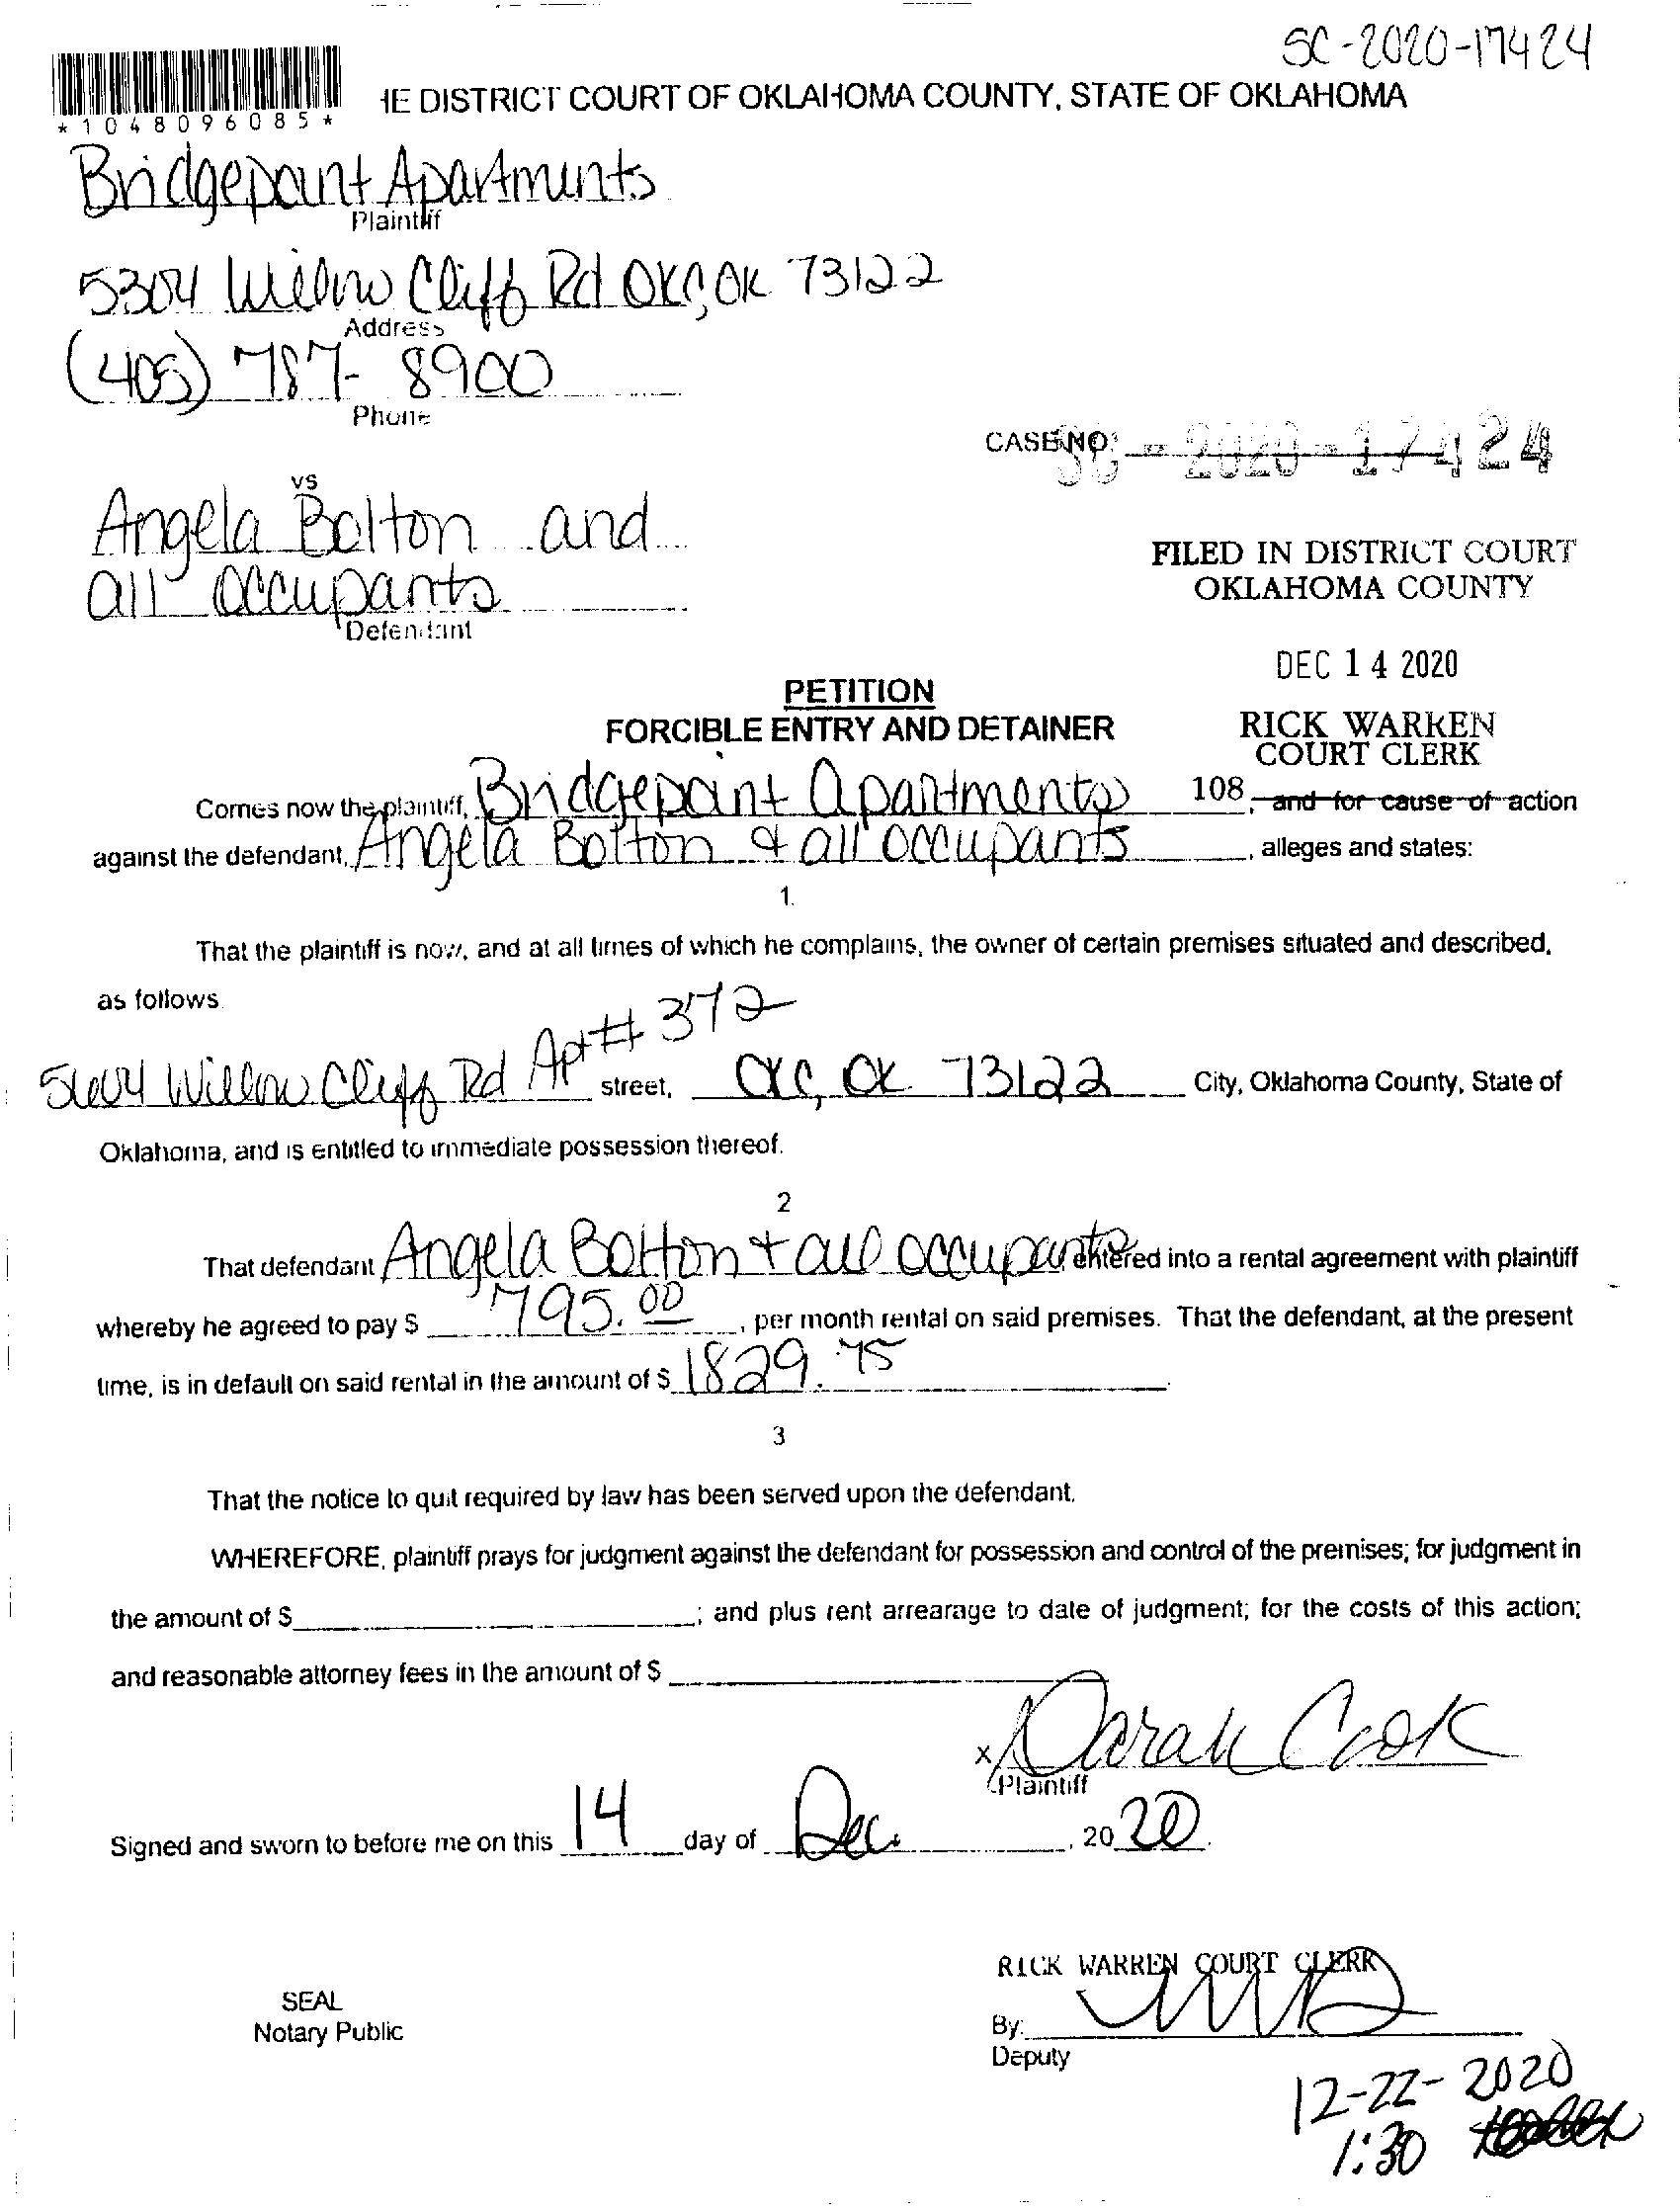 SC-2020-17424
*1048096085*
HE DISTRICT COURT OF OKLAHOMA COUNTY, STATE OF OKLAHOMA
Bridgepoint Apartments
Plaintiff
5304 Willow Cliff Rd OKC, OK 73122
Address
(405) 787-8900
Phone
CASE NO: SC-2020-17424
vs
Angela Bolton and
all occupants
Defendant
FILED IN DISTRICT COURT
OKLAHOMA COUNTY
DEC 14 2020
RICK WARREN
COURT CLERK
108
PETITION
FORCIBLE ENTRY AND DETAINER
Comes now the plaintiff, Bridgepoint Apartments, and for cause of action
against the defendant, Angela Bolton & all occupants, alleges and states:
1.
That the plaintiff is now, and at all times of which he complains, the owner of certain premises situated and described,
as follows.
Willow Cliff Rd Apt # 372 street, OKC, OK 73122 City, Oklahoma County, State of
Oklahoma, and is entitled to immediate possession thereof.
2
That defendant Angela Bolton + all occupants entered into a rental agreement with plaintiff
whereby he agreed to pay $ 795.00, per month rental on said premises. That the defendant, at the present
time, is in default on said rental in the amount of $ 1829.75.
3
That the notice to quit required by law has been served upon the defendant.
WHEREFORE, plaintiff prays for judgment against the defendant for possession and control of the premises; for judgment in
the amount of $ ; and plus rent arrearage to date of judgment; for the costs of this action;
and reasonable attorney fees in the amount of $
x Darah Cook
Plaintiff
Signed and sworn to before me on this 14 day of Dec., 2020.
RICK WARREN COURT CLERK
SEAL
Notary Public
By:
Deputy
12-22-2020
1:30